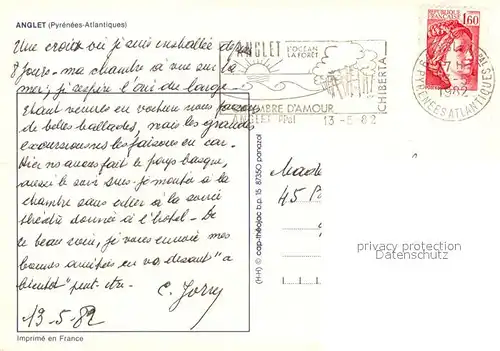 ANGLET (Pyrénées-Atlantiques)
Une croix où je suis installée depuis
8 jours - ma chambre a vue sur la
mer, je respire l'air du large.
Etant venues en voiture nous faisons
de belles ballades, mais les grandes
excursions nous les faisons en car.
Hier nous avons fait le pays basque,
aussi le soir suis-je montée à la
chambre sans aller à la soirée
théâtre donnée à l'hôtel - De
ce beau coin, je vous envoie mes
bonnes amitiés en vs disant "à
bientôt" peut-être.
C. Jorry
13-5-82
Imprimé en France
ANGLET L'OCEAN
LA FORET
CHIBERTA
CHAMBRE D'AMOUR
ANGLET Ppal 13 -5 82
REPUBLIQUE
FRANCAISE 1,60
1982
PYRENEES ATLANTIQUES
(HH) © cap-théojac b.p. 15 87350 panazol
45
privacy protection
Datenschutz